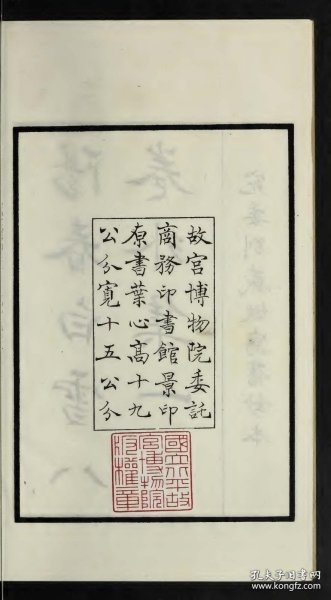 故宮博物院委託
商務印書館景印
原書葉心高十九
公分寬十五公分
國立北平故
宮博物院
版權章
孔夫子旧书网
www.kongfz.com